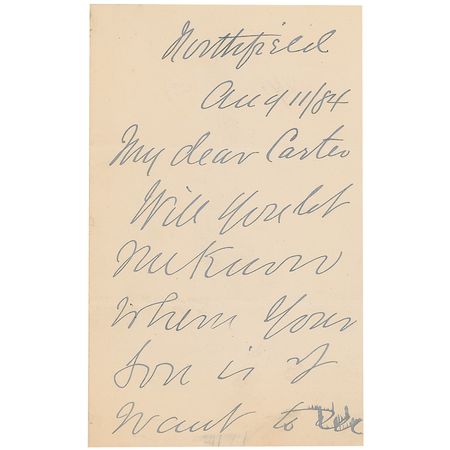 Northfield
Aug 11/84
My dear Carter
Will you let
me know
where your
son is I
want to see